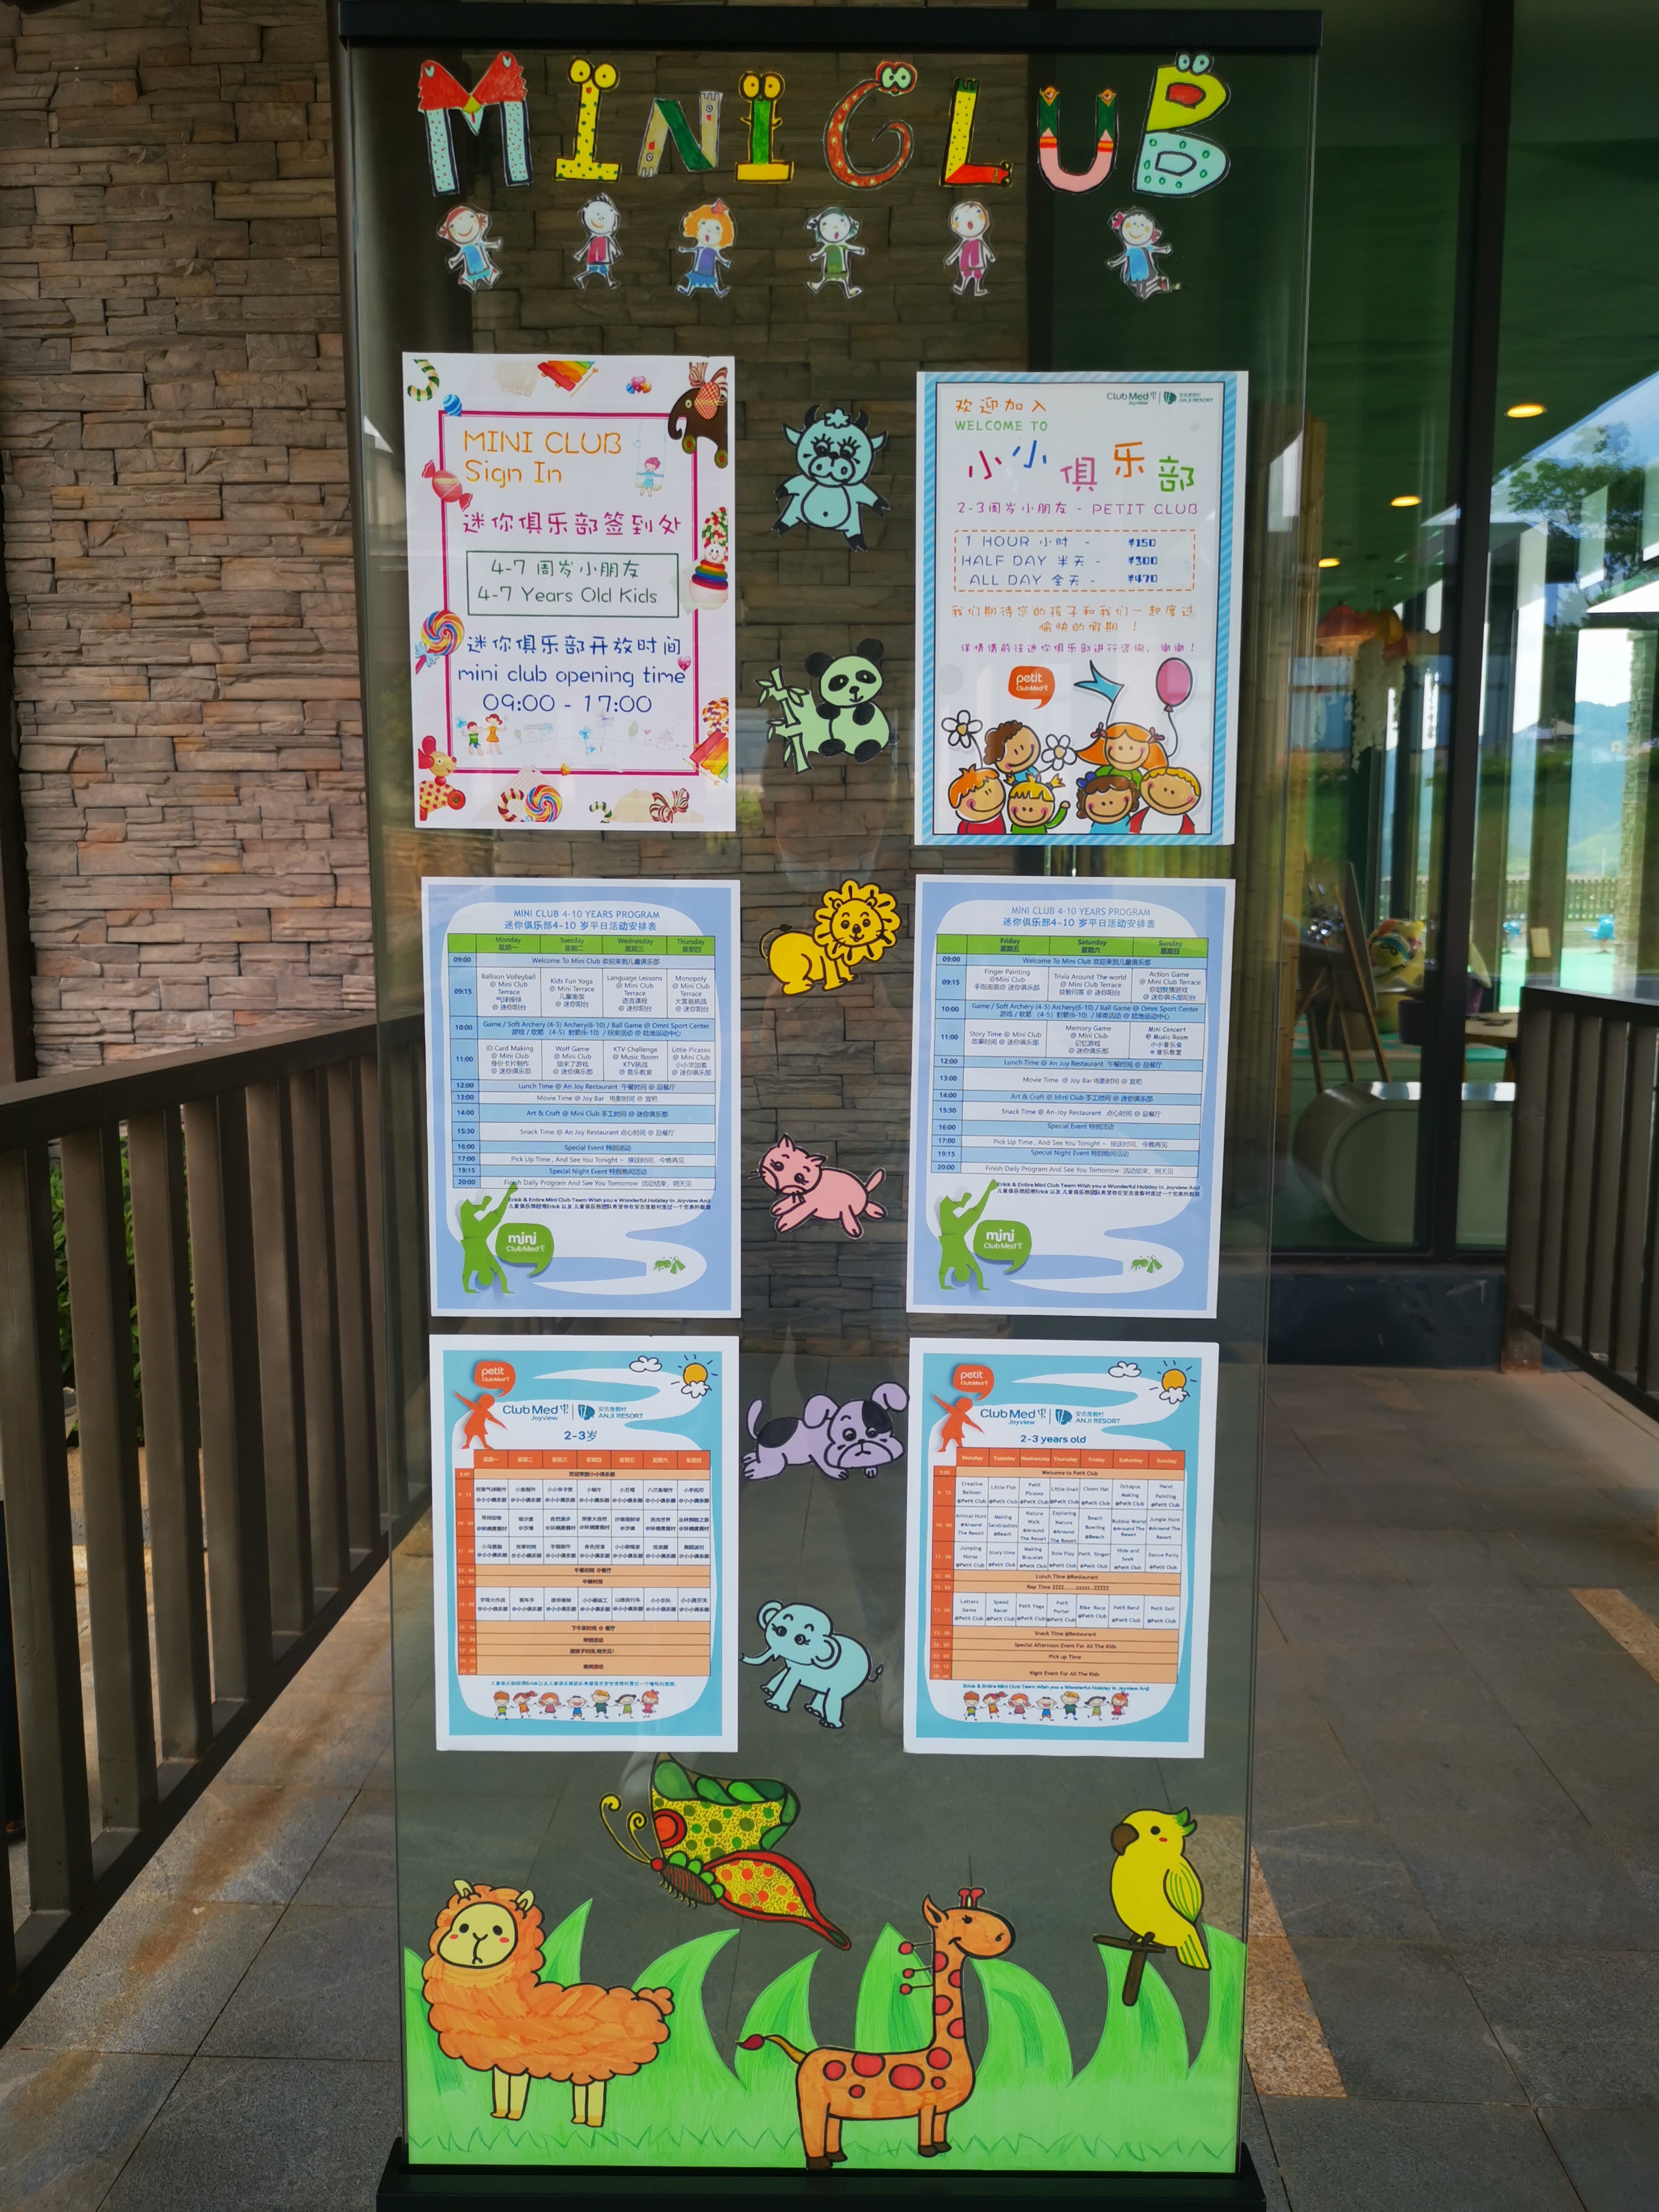 MINI CLUB
MINI CLUB
Sign In
迷你俱乐部签到处
4-7 周岁小朋友
4-7 Years Old Kids
迷你俱乐部开放时间
mini club opening time
09:00 - 17:00
Club Med
Joyview
ANJI RESORT
欢迎加入
WELCOME TO
小小俱乐部
2-3周岁小朋友 - PETIT CLUB
1 HOUR 小时 - ¥150
HALF DAY 半天 - ¥300
ALL DAY 全天 - ¥470
我们期待您的孩子和我们一起度过
愉快的假期 !
详情请前往迷你俱乐部进行咨询, 谢谢!
petit
Club Med
MINI CLUB 4-10 YEARS PROGRAM
迷你俱乐部4-10 岁平日活动安排表
Monday 星期一 Tuesday 星期二 Wednesday 星期三 Thursday 星期四
09:00 Welcome To Mini Club 欢迎来到儿童俱乐部
09:15
Balloon Volleyball @ Mini Club Terrace 气球排球 @ 迷你阳台
Kids Fun Yoga @ Mini Terrace 儿童瑜伽 @ 迷你阳台
Language Lessons @ Mini Club Terrace 语言课程 @ 迷你阳台
Monopoly @ Mini Club Terrace 大富翁挑战 @ 迷你阳台
10:00 Game / Soft Archery (4-5) Archery(6-10) / Ball Game @ Omni Sport Center
游戏 / 软箭 (4-5) 射箭(6-10) / 球类活动 @ 陆地运动中心
11:00
ID Card Making @ Mini Club 身份卡片制作 @ 迷你俱乐部
Wolf Game @ Mini Club 狼来了游戏 @ 迷你俱乐部
KTV Challenge @ Music Room KTV挑战 @ 音乐教室
Little Picasso @ Mini Club 小小毕加索 @ 迷你俱乐部
12:00 Lunch Time @ An Joy Restaurant 午餐时间 @ 品餐厅
13:00 Movie Time @ Joy Bar 电影时间 @ 宜吧
14:00 Art & Craft @ Mini Club 手工时间 @ 迷你俱乐部
15:30 Snack Time @ An Joy Restaurant 点心时间 @ 品餐厅
16:00 Special Event 特别活动
17:00 Pick Up Time , And See You Tonight ~ 接送时间、今晚再见
19:15 Special Night Event 特别晚间活动
20:00 Finish Daily Program And See You Tomorrow 活动结束, 明天见
Erick & Entire Mini Club Team Wish you a Wonderful Holiday In Joyview Anji
mini
Club Med
MINI CLUB 4-10 YEARS PROGRAM
迷你俱乐部4-10 岁平日活动安排表
Friday 星期五 Saturday 星期六 Sunday 星期日
09:00 Welcome To Mini Club 欢迎来到儿童俱乐部
09:15
Finger Painting @Mini Club 手指画画@ 迷你俱乐部
Trivia Around The world @ Mini Club Terrace 益智问答 @ 迷你阳台
Action Game @ Mini Club Terrace 你划我猜游戏 @ 迷你俱乐部阳台
10:00 Game / Soft Archery (4-5) Archery(6-10) / Ball Game @ Omni Sport Center
游戏 / 软箭 (4-5) 射箭(6-10) / 球类活动 @ 陆地运动中心
11:00
Story Time @ Mini Club 故事时间 @ 迷你俱乐部
Memory Game @ Mini Club 记忆游戏 @ 迷你俱乐部
Mini Concert @ Music Room 小小音乐会 @ 音乐教室
12:00 Lunch Time @ An Joy Restaurant 午餐时间 @ 品餐厅
13:00 Movie Time @ Joy Bar 电影时间 @ 宜吧
14:00 Art & Craft @ Mini Club 手工时间 @ 迷你俱乐部
15:30 Snack Time @ An Joy Restaurant 点心时间 @ 品餐厅
16:00 Special Event 特别活动
17:00 Pick Up Time , And See You Tonight ~ 接送时间、今晚再见
19:15 Special Night Event 特别晚间活动
20:00 Finish Daily Program And See You Tomorrow 活动结束、明天见
Erick & Entire Mini Club Team Wish you a Wonderful Holiday In Joyview Anji
mini
Club Med
petit
Club Med
Club Med
Joyview
安吉度假村
ANJI RESORT
2-3岁
星期一 星期二 星期三 星期四 星期五 星期六 星期日
欢迎来到小小俱乐部
午餐时间 @餐厅
午睡时间
下午茶时间 @ 餐厅
特别活动
晚间活动
petit
Club Med
Club Med
Joyview
安吉度假村
ANJI RESORT
2-3 years old
Monday Tuesday Wednesday Thursday Friday Saturday Sunday
Welcome to Petit Club
Creative Balloon @Petit Club
Little Fish @Petit Club
Petit Picasso @Petit Club
Little Snail @Petit Club
Clown Hat @Petit Club
Octopus Making @Petit Club
Hand Painting @Petit Club
Animal Hunt @Around The Resort
Making Sandcastles @Beach
Nature Walk @Around The Resort
Exploring Nature @Around The Resort
Beach Bowling @Beach
Bubble World @Around The Resort
Jungle Hunt @Around The Resort
Jumping Horse @Petit Club
Story time @Petit Club
Making Bracelet @Petit Club
Role Play @Petit Club
Petit Singer @Petit Club
Hide and Seek @Petit Club
Dance Party @Petit Club
Lunch Time @Restaurant
Nap Time
Letters Game @Petit Club
Speed Racer @Petit Club
Petit Yoga @Petit Club
Petit Porter @Petit Club
Bike Race @Petit Club
Petit Band @Petit Club
Petit Golf @Petit Club
Snack Time @Restaurant
Special Afternoon Event For All The Kids
Pick up Time
Night Event For All The Kids
Erick & Entire Mini Club Team Wish you a Wonderful Holiday In Joyview Anji